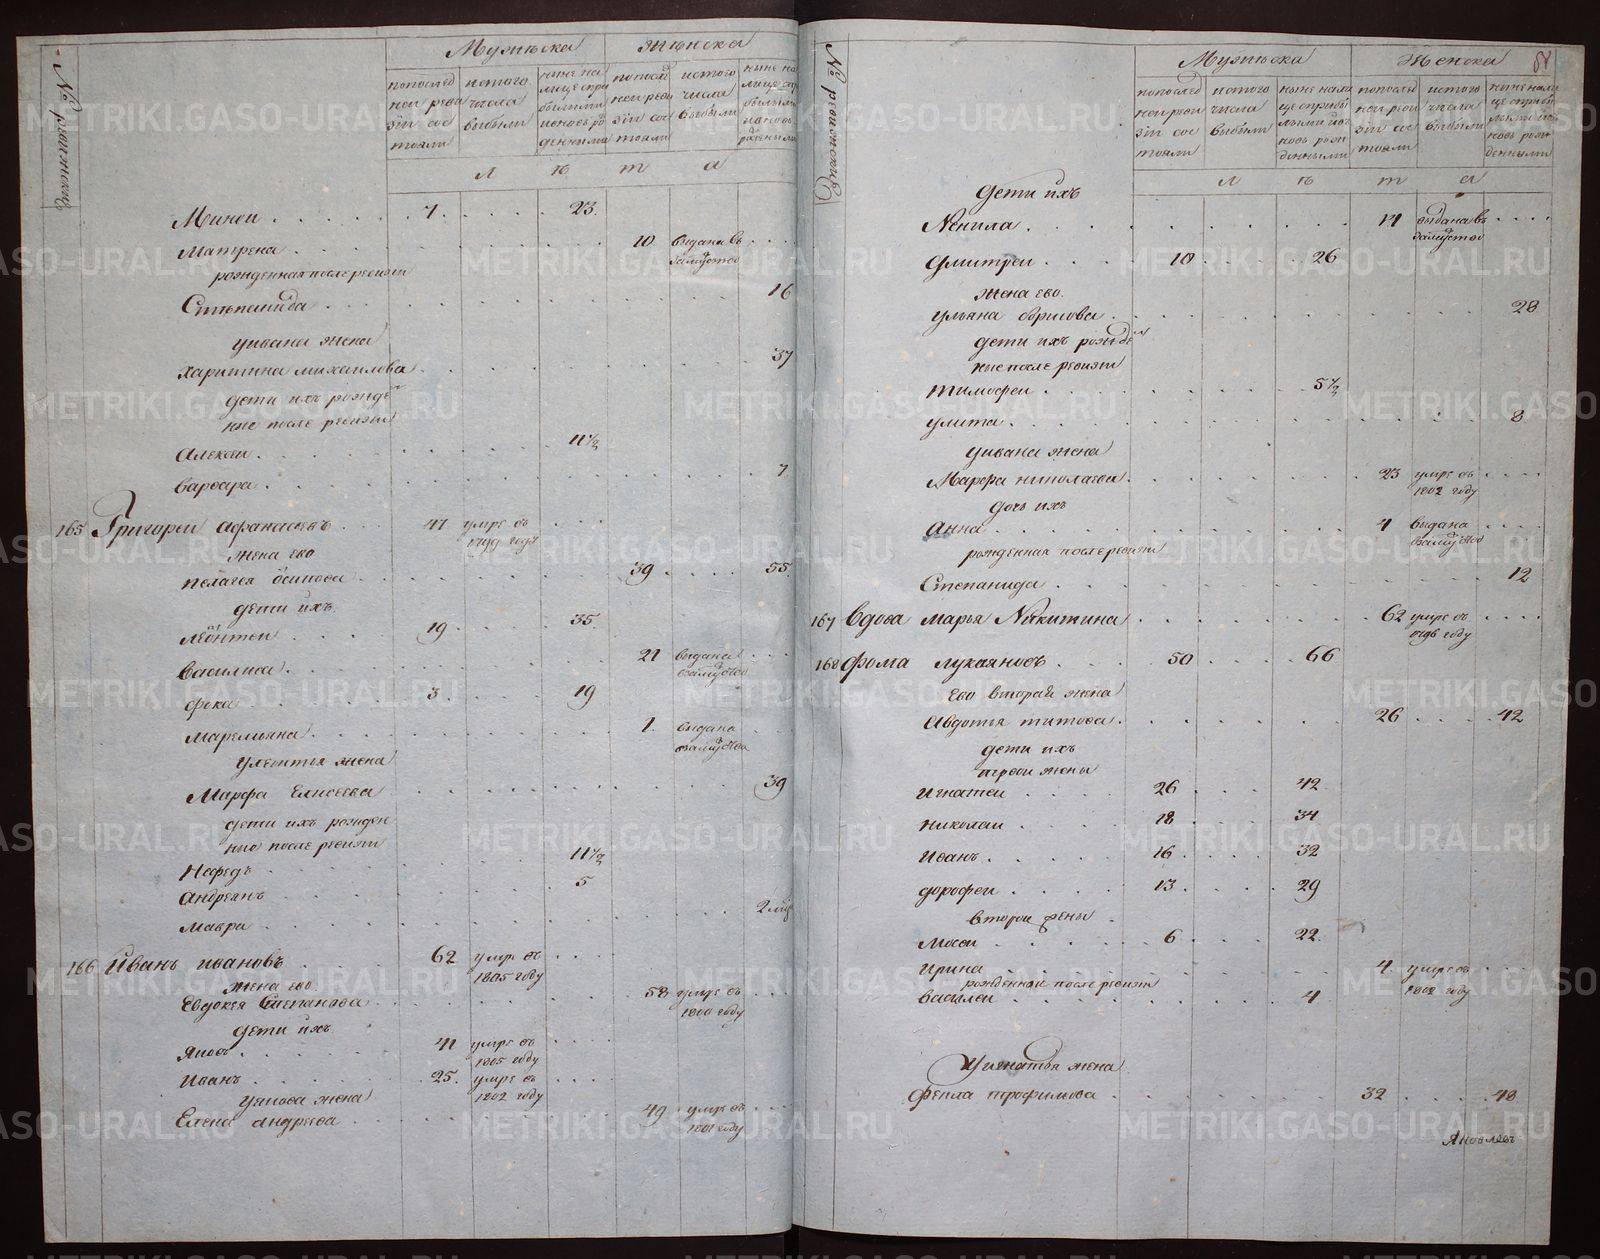 № ревижской
Мужеска
Женска
попослед ней реви зіи сос тояли
изтого числа выбыли
ныне на лице спри былыми ивновь рож денными
попосл ней реви зіи сос тояли
изтого числа выбыли
ныне на лице спри былыми ивновь рожденными
Л ѣ т а
Миней . . . 7 . . . 23
Матрена . . . 10 выдана въ замуство
рожденная после ревизіи
Степанида . . . 16
уивана жена
харитина михаилова . . . 37
дети ихъ рожде
ные после ревизіи
Алексеи . . . 11½
варвара . . . 7
165 Григореи афанасьевъ . . . 47 умре въ году
жена ево
пелагея Осипова . . . 39 . . . 55
дети ихъ
леонтеи . . . 19 . . . 35
василиса . . . 21 выдана взамуство
фока . . . 3 . . . 19
маремьяна . . . 1 выдана взамуство
улеонтья жена
Марфа Елисеева . . . 39
дети ихъ рожден
ные после ревизіи
Нефедъ . . . 11½
андреянъ . . . 5
мавра . . . 2
166 Иванъ ивановъ . . . 62 умре въ 1805 году
жена ево
Евдокея Степанова . . . 58 умре въ 1800 году
дети ихъ
яковъ . . . 41 умре въ 1805 году
иванъ . . . 25 умре въ 1802 году
уякова жена
Елена андреева . . . 49 умре въ 1801 году
№ ревижской
Мужеска
Женска
попослед ней реви зіи сос тояли
изтого числа выбыли
ныне нали це сприбы лыми ивъ новь рож денными
попослъ ней реви зіи сос тояли
изтого числа выбыли
ныне нали це сприбы лыми ив новь рож денными
Л ѣ т а
дети ихъ
Ненила . . . 14 выдана въ замуство
дмитреи . . . 10 . . . 26
жена ево
ульяна борисова . . . 28
дети ихъ рожде
ные после ревизіи
тимофеи . . . 5½
улита . . . 8
уивана жена
Марфа николаева . . . 23 умре въ 1802 году
дочь ихъ
анна . . . 4 выдана взамуство
рожденная после ревизіи
Степанида . . . 12
167 вдова марья Никитина . . . 62 умре въ 1796 году
168 фома лукаяновъ . . . 50 . . . 66
ево вторая жена
авдотья титова . . . 26 . . . 42
дети ихъ
первои жены
игнатеи . . . 26 . . . 42
николаи . . . 18 . . . 34
иванъ . . . 16 . . . 32
дорофеи . . . 13 . . . 29
второи жены
мосеи . . . 6 . . . 22
ирина . . . 4 умре въ 1802 году
рожденные после ревизіи
василеи . . . 4
уигнатья жена
фекла трофимова . . . 32 . . . 48
METRIKI.GASO-URAL.RU